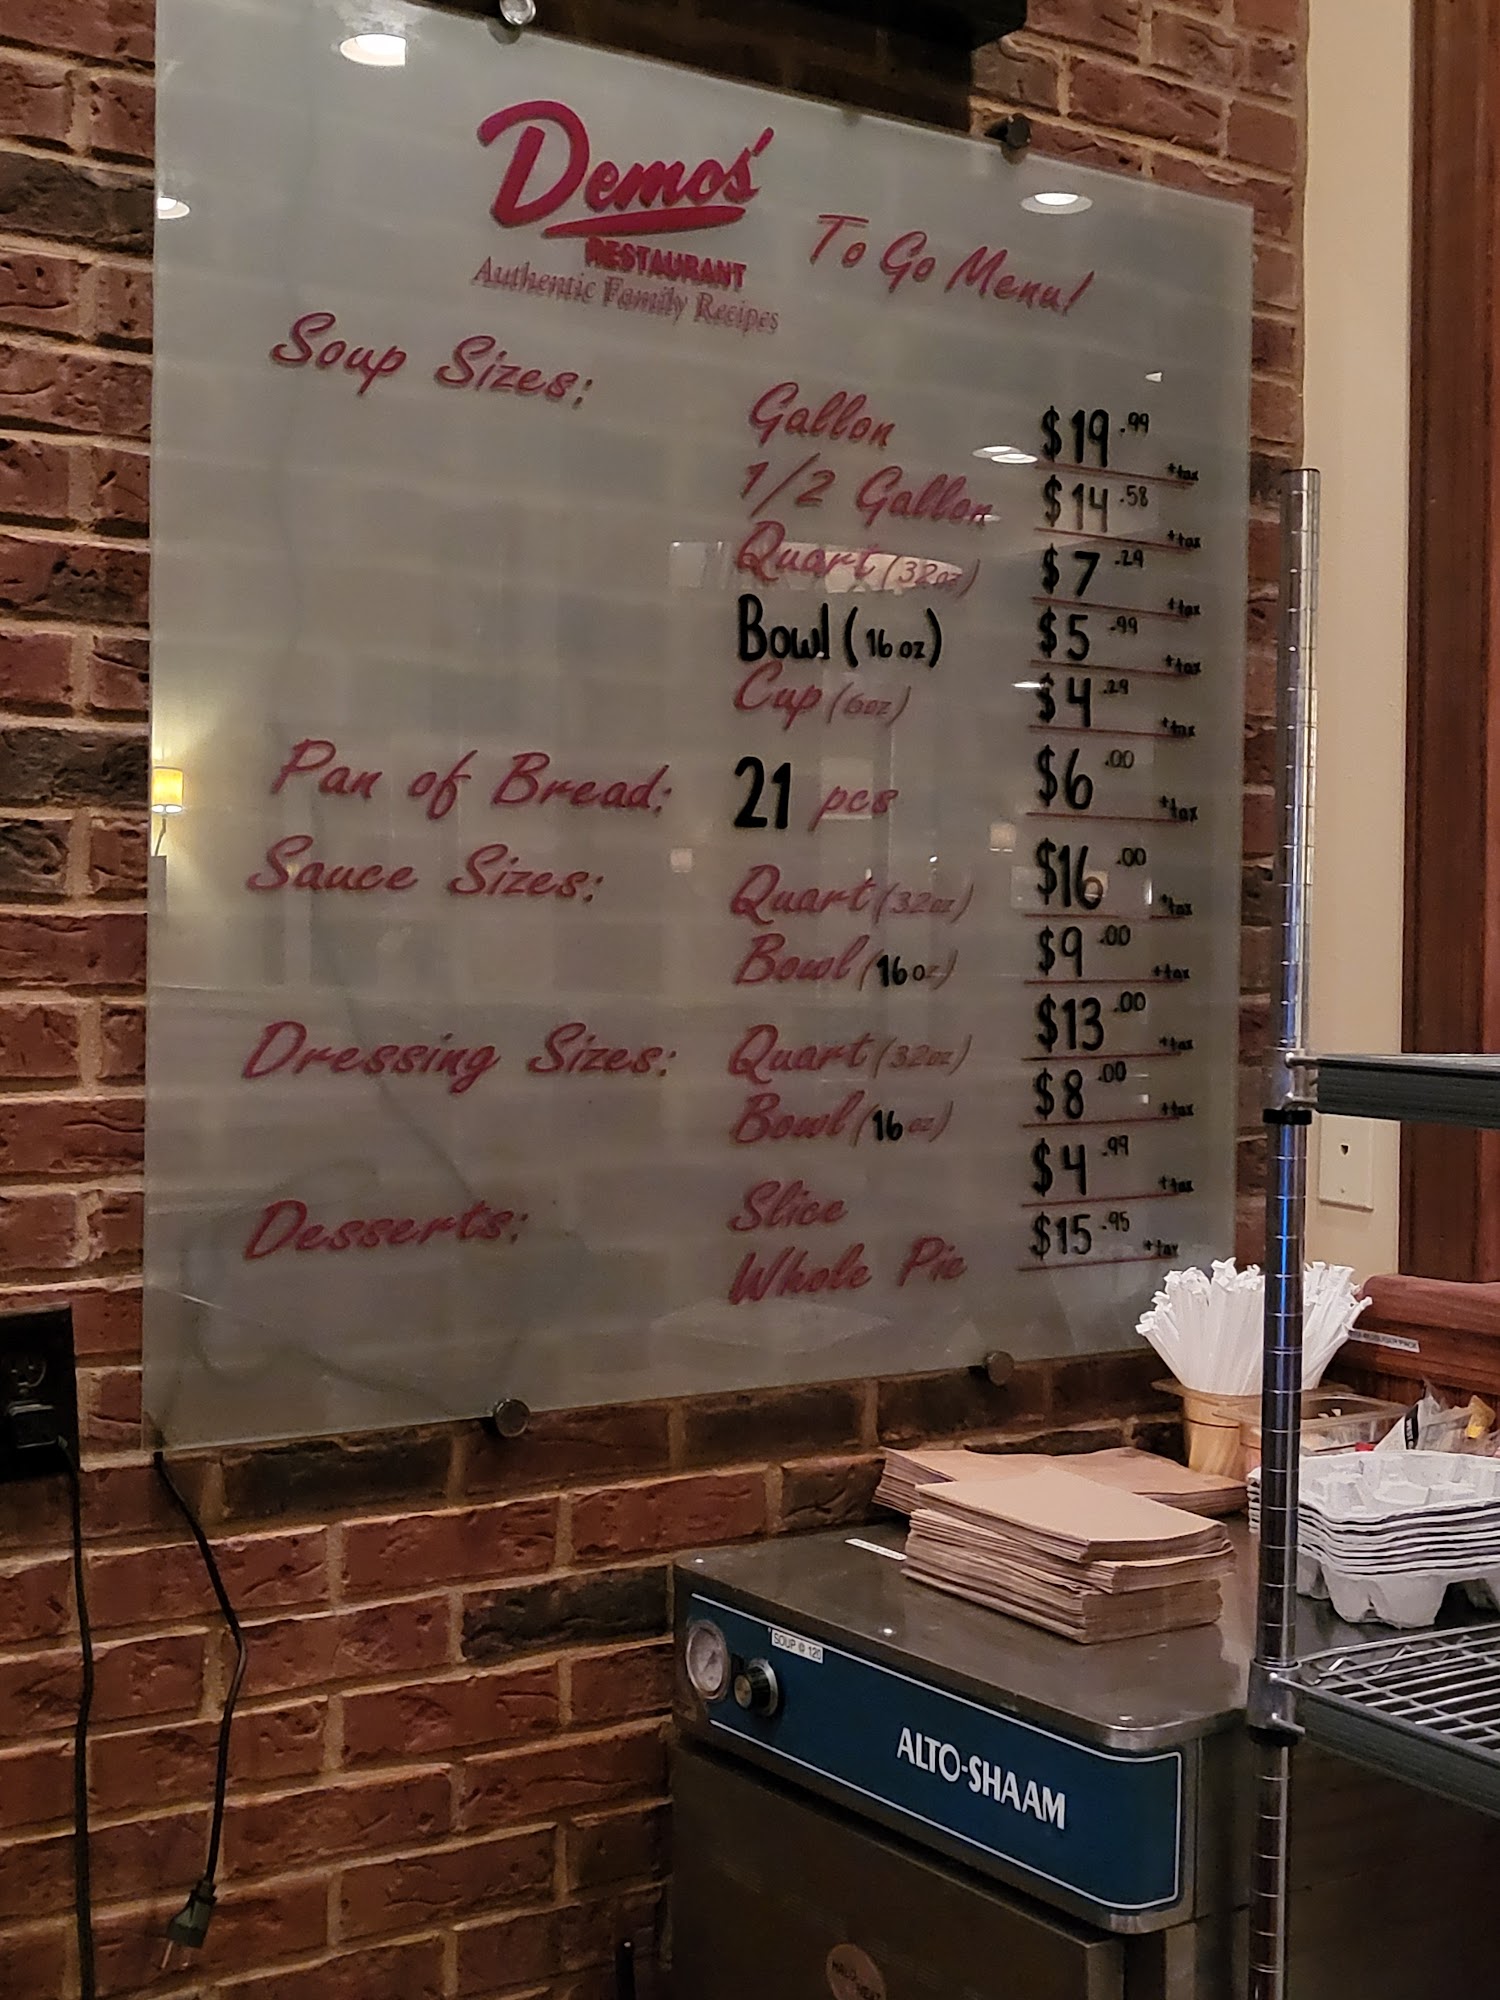 Demos'
RESTAURANT
Authentic Family Recipes
To Go Menu!
Soup Sizes:
Gallon $19.99 +tax
1/2 Gallon $14.58 +tax
Quart (32oz) $7.29 +tax
Bowl (16 oz) $5.99 +tax
Cup (6oz) $4.29 +tax
Pan of Bread: 21 pcs $6.00 +tax
Sauce Sizes: Quart (32oz) $16.00 +tax
Bowl (16 oz) $9.00 +tax
Dressing Sizes: Quart (32oz) $13.00 +tax
Bowl (16 oz) $8.00 +tax
Desserts: Slice $4.99 +tax
Whole Pie $15.95 +tax
SOUP @ 120
ALTO-SHAAM